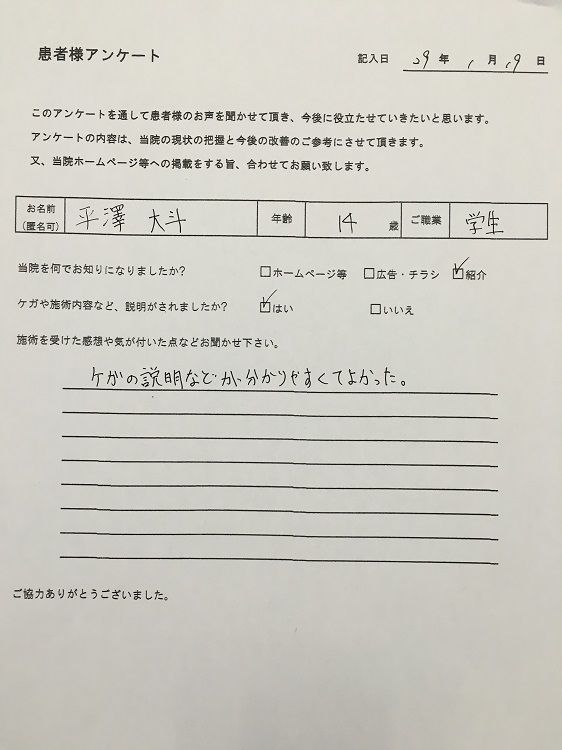 患者様アンケート
記入日 29年 1月 19日
このアンケートを通して患者様のお声を聞かせて頂き、今後に役立たせていきたいと思います。
アンケートの内容は、当院の現状の把握と今後の改善のご参考にさせて頂きます。
又、当院ホームページ等への掲載をする旨、合わせてお願い致します。
お名前(匿名可) 平澤 大斗 年齢 14歳 ご職業 学生
当院を何でお知りになりましたか? □ホームページ等 □広告・チラシ ☑紹介
ケガや施術内容など、説明がされましたか? ☑はい □いいえ
施術を受けた感想や気が付いた点などお聞かせ下さい。
ケガの説明などが、分かりやすくてよかった。
ご協力ありがとうございました。